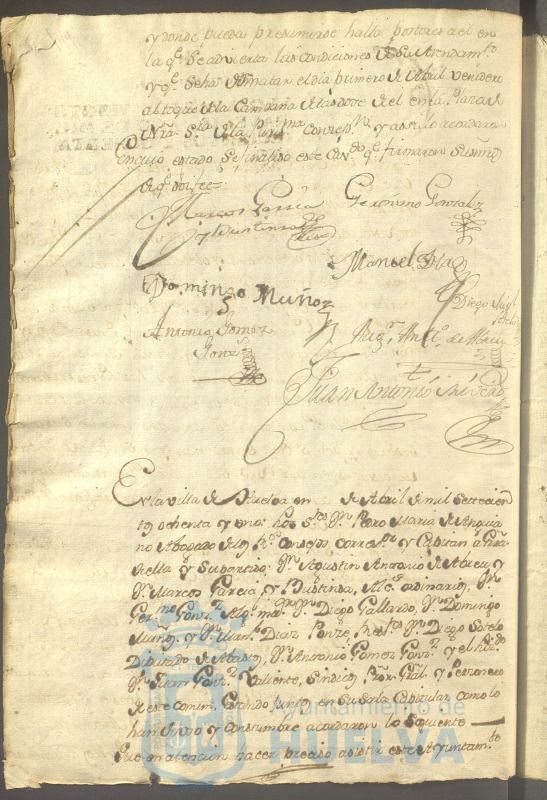 y donde pueda presumirse halla postores a el en
la qe. se advierta las condiciones de su Arrendamto.
y qe. se ha de rematar el dia primero de Abril venidero
al toque de la Campana de las doce de el en la Plaza de
Nra. Sra. de la Purma. Concepon. y assi lo acordaron
en cuyo estado se finalizó este Cavdo. qe. firmaron sus mrds
de qe. doi fee=
Marcos Garcia Geronimo Gonzalez
y Bustinza
Manuel Diaz
Domingo Muñoz
Diego
Antonio Gomez
Gonzz.
Agn. Anto. de Abreu
Juan Antonio
En la villa de Huelva en de Abril de mil setecien
tos ochenta y uno: los Sres. Dn. Pedro Maria de Anguia
no Abogado de los Rs. Consejos Corregor. y Capitan a Grra.
de ella y su partido, Dn. Agustin Antonio de Abreu y
Dn. Marcos Garcia y Bustinza, Alcs. ordinarios, Dn.
Germo. Gonz. Algl. mor. Dn. Diego Gallardo, Dn. Domingo
Muñoz y Dn. Manl. Diaz Ponze, Dn. Diego Sotelo
Diputado de Abastos, Dn. Antonio Gomez Gonz. y el
Dn. Juan Gonz. Valiente, Sindico Pror. Gral. y Personero
de este comun, Estando juntos en su sala Capitular como lo
han de uso y costumbre acordaron lo siguiente
Que en atencion hacer preciso asistir este Ayuntamto.
Ayuntamiento de
HUELVA